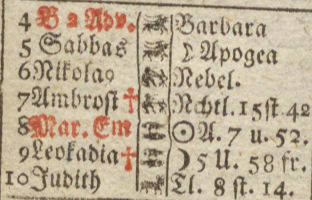 4 B 2 Adv. Barbara
5 Sabbas ☽ Apogea
6 Nikolaq Nebel.
7 Ambrosi † Nchtl. 15 st. 42
8 Mar. Em ☉ A. 7 u. 52.
9 Leokadia † ☽ 5 U. 58 fr.
10 Judith Tl. 8 st. 14.